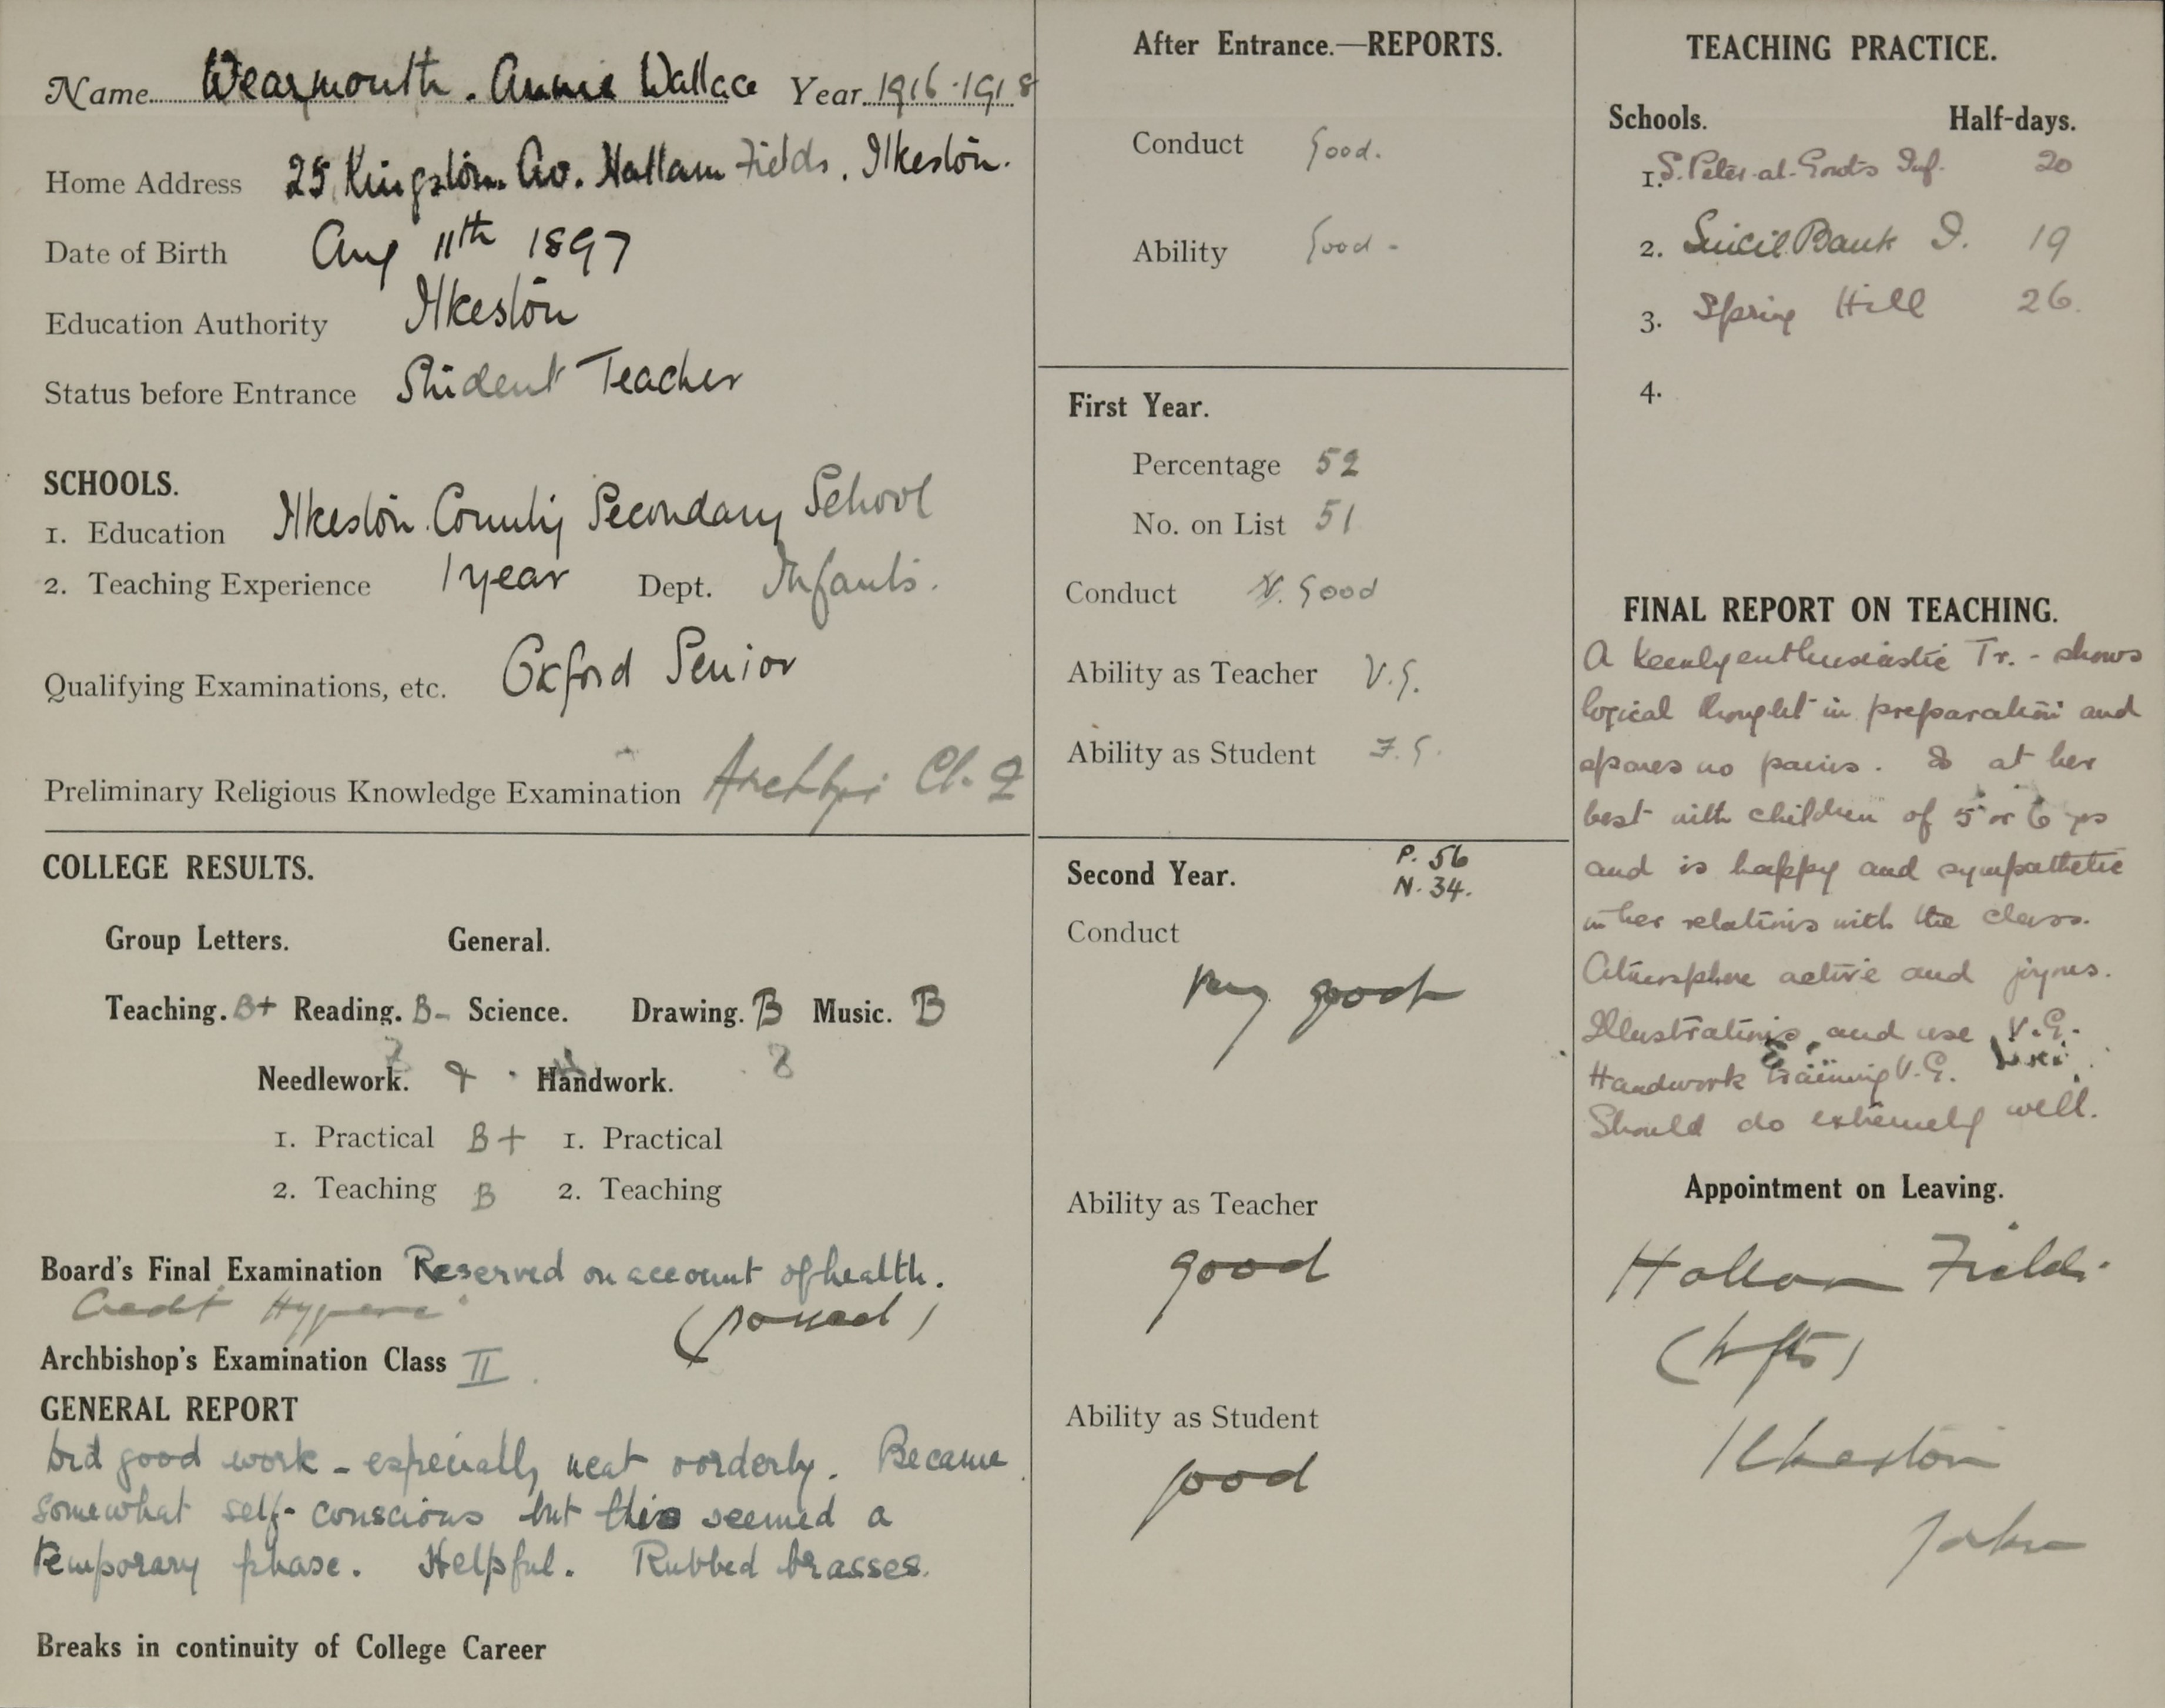 Name Wearmouth. Annie Wallace Year 1916-1918
Home Address 25 Kingston Av. Hallam Fields, Ilkeston.
Date of Birth Aug 11th 1897
Education Authority Ilkeston
Status before Entrance Student Teacher
SCHOOLS.
1. Education Ilkeston County Secondary School
2. Teaching Experience 1 year Dept. Infants.
Qualifying Examinations, etc. Oxford Senior
Preliminary Religious Knowledge Examination Archbps Cl. 2
COLLEGE RESULTS.
Group Letters. General.
Teaching. B+ Reading. B- Science. Drawing. B Music. B
Needlework. Handwork.
1. Practical B+ 1. Practical
2. Teaching B 2. Teaching
Board's Final Examination Reserved on account of health.
Credit Hygiene (passed)
Archbishop's Examination Class II.
GENERAL REPORT
Did good work - especially neat & orderly. Became
somewhat self-conscious but this seemed a
temporary phase. Helpful. Rubbed brasses.
Breaks in continuity of College Career
After Entrance.—REPORTS.
Conduct Good.
Ability Good -
First Year.
Percentage 52
No. on List 51
Conduct V. Good
Ability as Teacher V.G.
Ability as Student F.G.
Second Year. P. 56
N. 34.
Conduct
Very good
Ability as Teacher
good
Ability as Student
good
TEACHING PRACTICE.
Schools. Half-days.
1. S. Peter-at-Gowts Inf. 20
2. Sincil Bank I. 19
3. Spring Hill 26.
4.
FINAL REPORT ON TEACHING.
A keenly enthusiastic Tr. - shows
logical thought in preparation and
spares no pains. Is at her
best with children of 5 or 6 yrs
and is happy and sympathetic
in her relations with the class.
Atmosphere active and joyous.
Illustrations and use V.G.
Handwork training V.G.
Should do extremely well.
Appointment on Leaving.
Hallam Fields.
(Infts)
Ilkeston